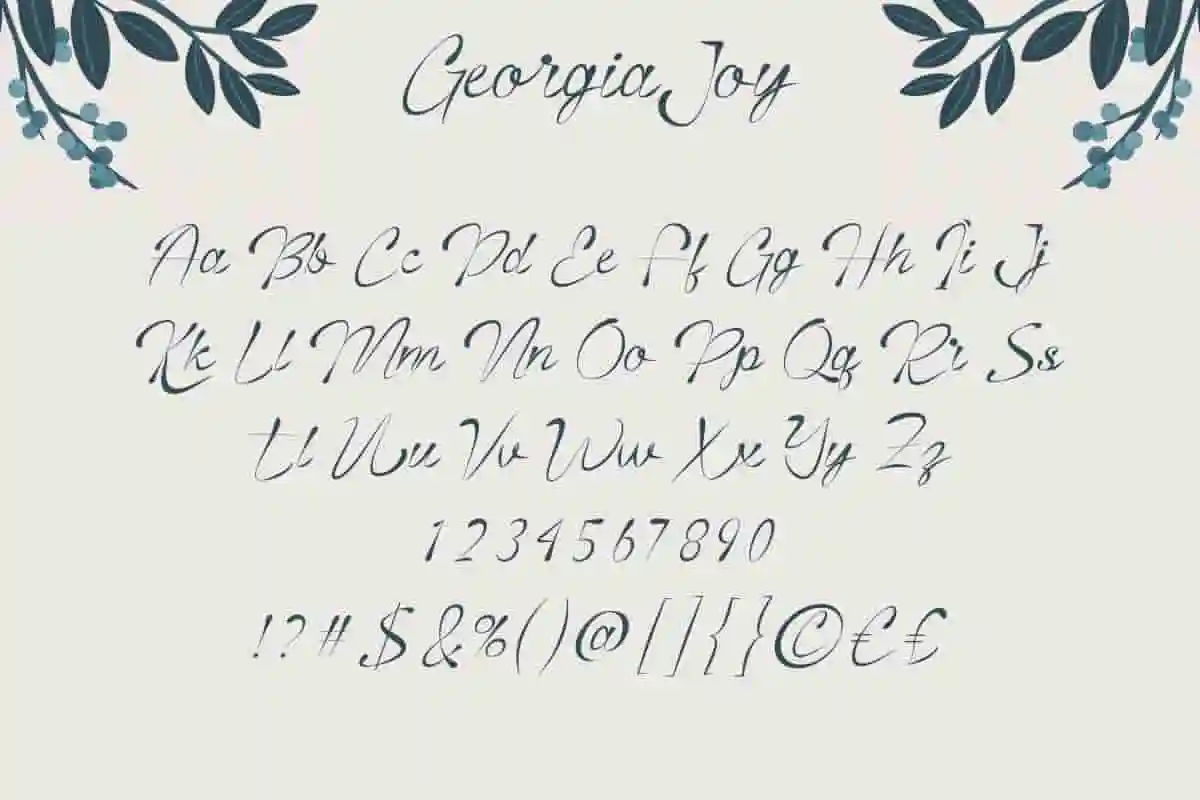 Georgia Joy
Aa Bb Cc Dd Ee Ff Gg Hh Ii Jj
Kk Ll Mm Nn Oo Pp Qq Rr Ss
Tt Uu Vv Ww Xx Yy Zz
1234567890
!?#$&%()@[]{}©€£